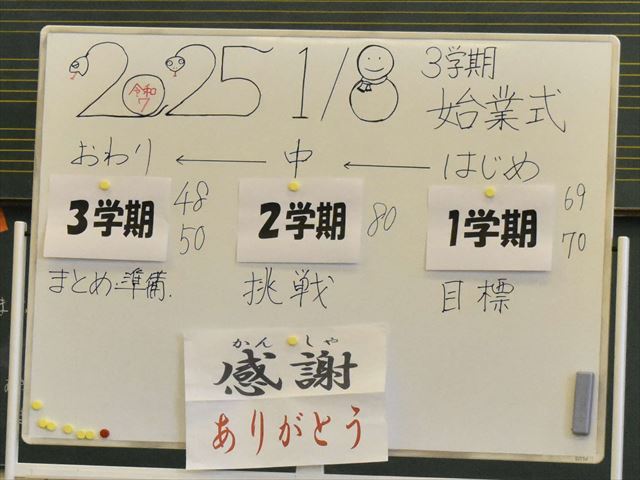 2025 1/8
令和
7
3学期
始業式
おわり ← 中 ← はじめ
3学期
48
50
2学期
80
1学期
69
70
まとめ・準備.
挑戦
目標
かんしゃ
感謝
ありがとう